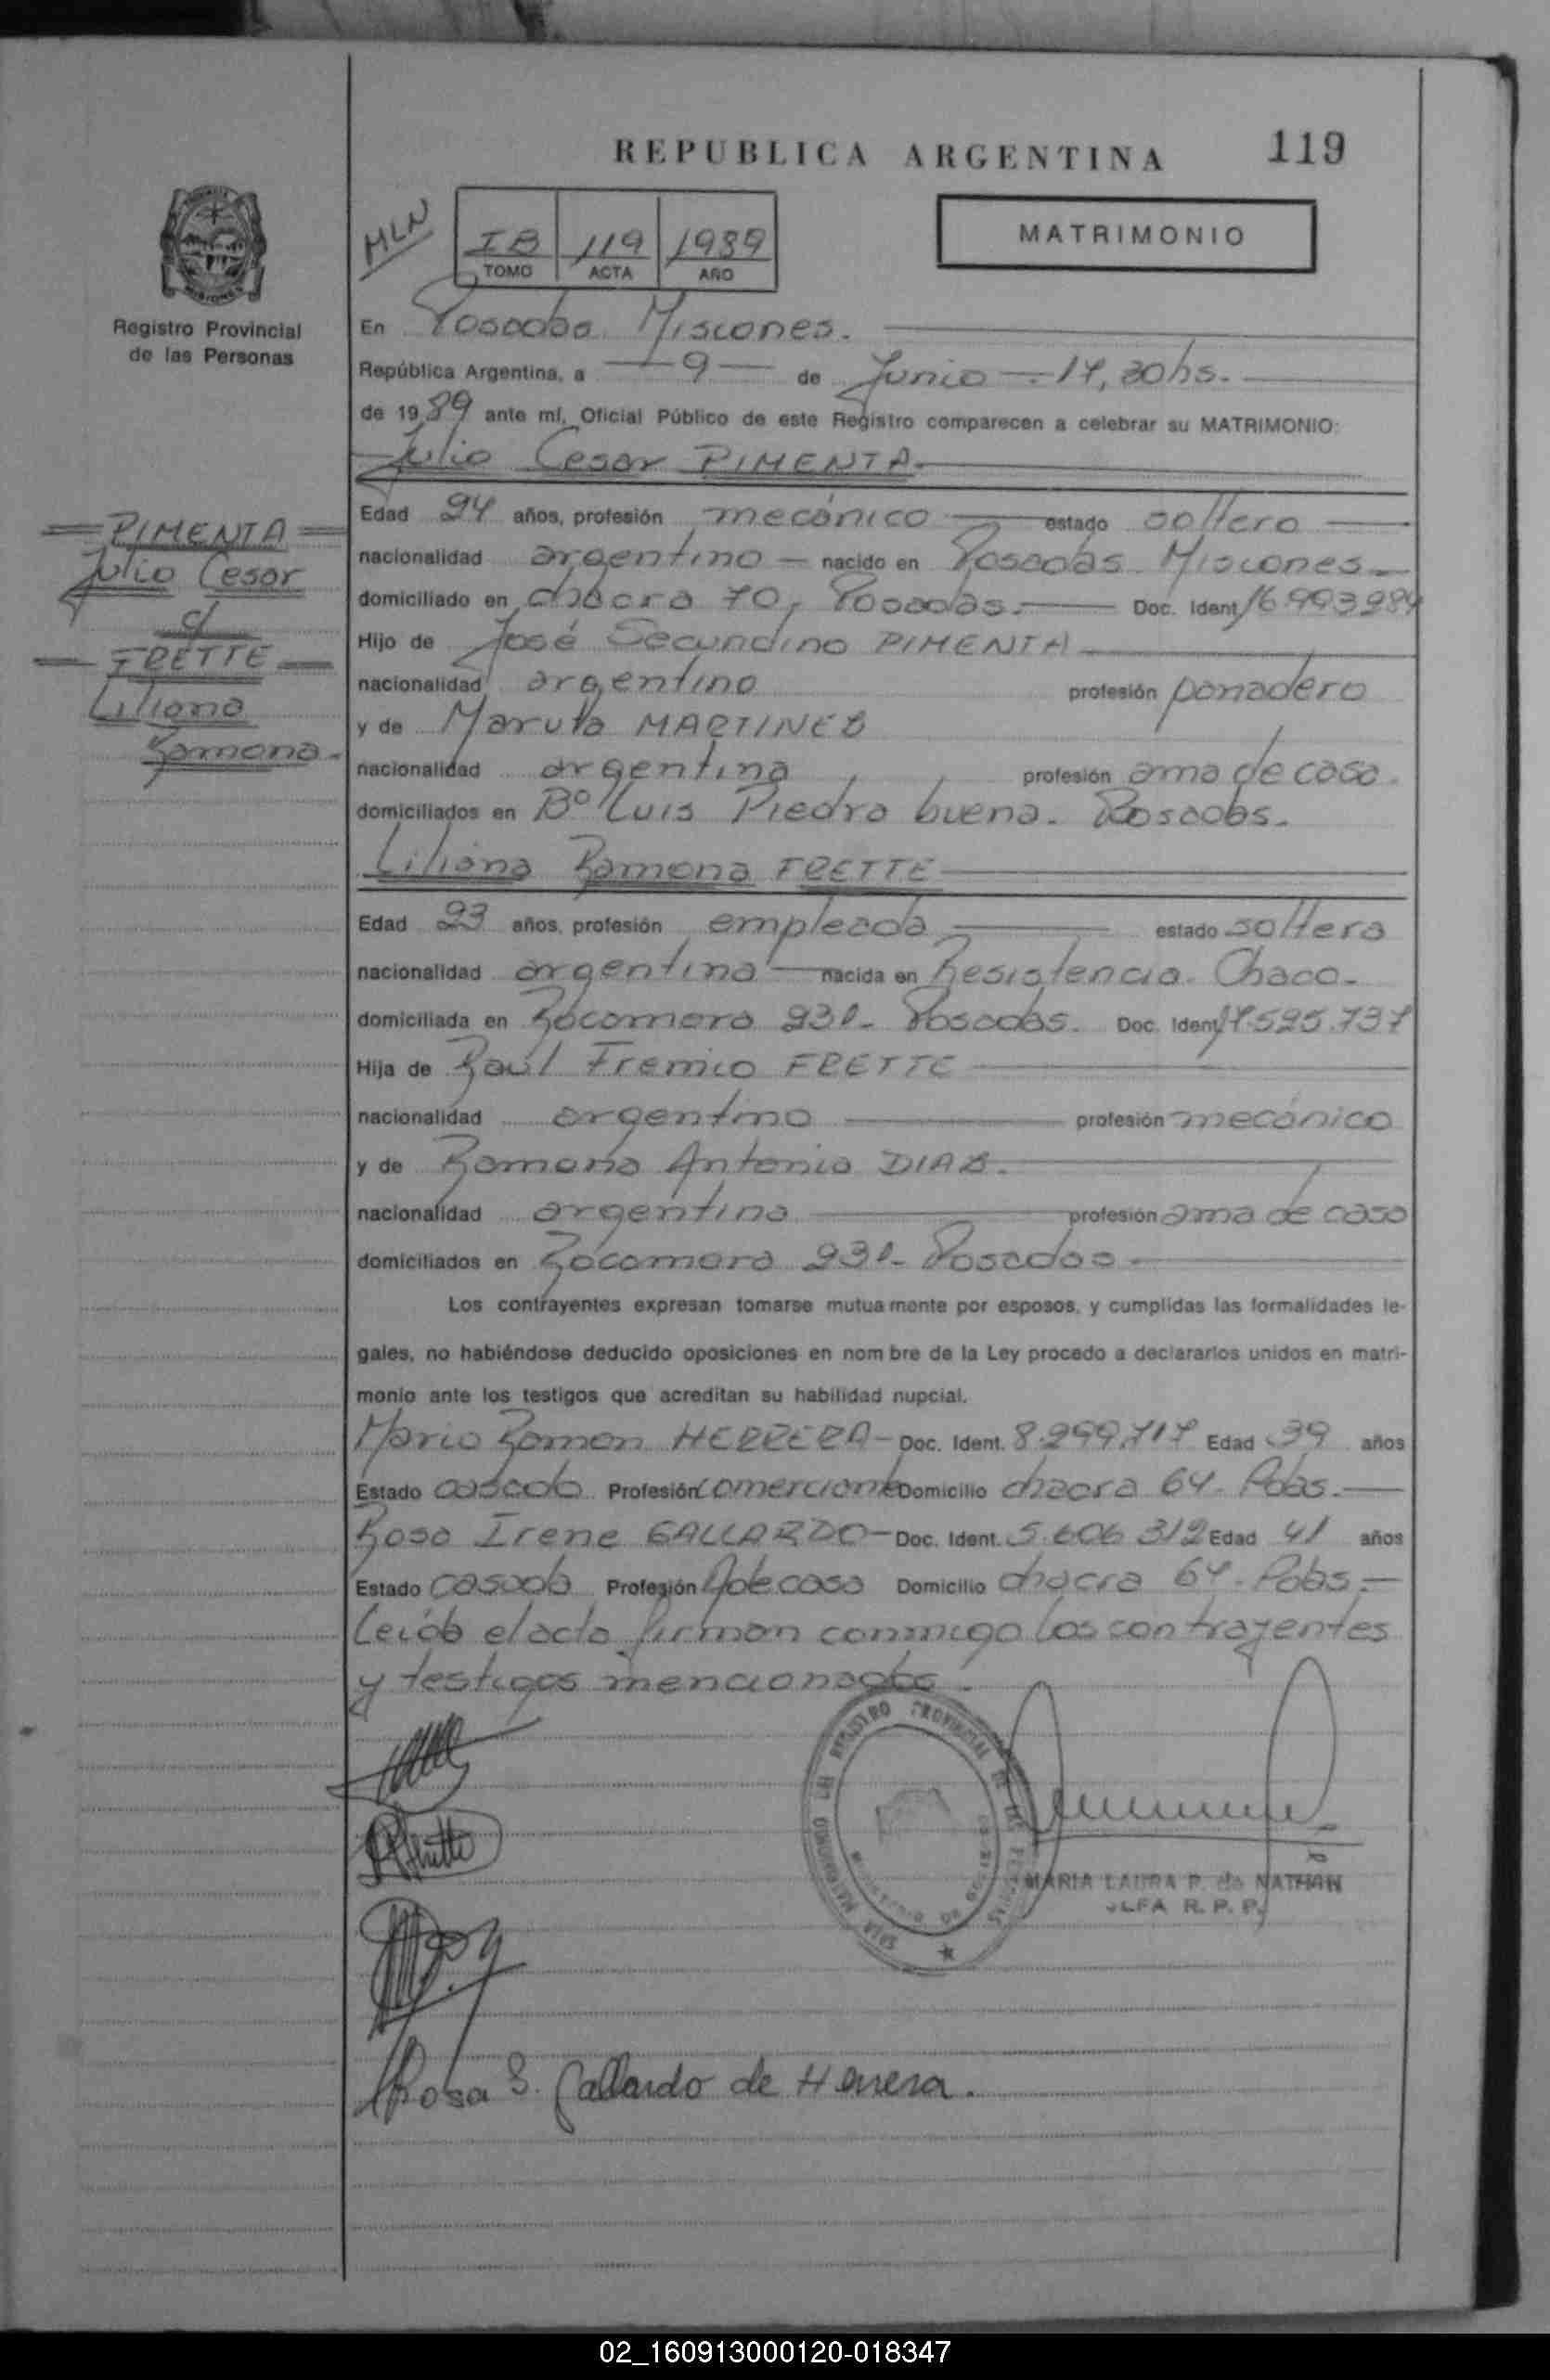 REPUBLICA ARGENTINA
119
MLN
IB 119 1989
TOMO ACTA AÑO
MATRIMONIO
Registro Provincial
de las Personas
En Posadas Misiones.
República Argentina, a 9 de Junio - 17,30hs.
de 1989 ante mí, Oficial Público de este Registro comparecen a celebrar su MATRIMONIO:
Julio Cesar PIMENTA
PIMENTA
Julio Cesar
c/
FRETTE
Liliana
Ramona
Edad 24 años, profesión mecánico estado soltero
nacionalidad argentino nacido en Posadas Misiones
domiciliado en chacra 70, Posadas. Doc. Ident 16.993.984
Hijo de José Secundino PIMENTA
nacionalidad argentino profesión panadero
y de Maruta MARTINEZ
nacionalidad argentina profesión ama de casa.
domiciliados en Bº Luis Piedra buena. Posadas.
Liliana Ramona FRETTE
Edad 23 años, profesión empleada estado soltera
nacionalidad argentina nacida en Resistencia. Chaco.
domiciliada en Rocamora 231. Posadas. Doc. Ident 17.595.737
Hija de Raúl FRETTE
nacionalidad argentino profesión mecánico
y de Ramona Antonia DIAZ.
nacionalidad argentina profesión ama de casa
domiciliados en Rocamora 231. Posadas
Los contrayentes expresan tomarse mutua mente por esposos, y cumplidas las formalidades le-
gales, no habiéndose deducido oposiciones en nom bre de la Ley procedo a declararlos unidos en matri-
monio ante los testigos que acreditan su habilidad nupcial.
Mario Ramon HERRERA - Doc. Ident. 8.299.717 Edad 39 años
Estado casado Profesión comerciante Domicilio chacra 64. Pdas.
Rosa Irene GALLARDO - Doc. Ident. 5.606.312 Edad 41 años
Estado casada Profesión A de casa Domicilio chacra 64. Pdas.
Leída el acta firman conmigo los contrayentes
y testigos mencionados.
REGISTRO PROVINCIAL DE LAS PERSONAS
MARIA LAURA P. de NATHAN
JEFA R. P. P.
Rosa I. Gallardo de Herrera.
02_160913000120-018347